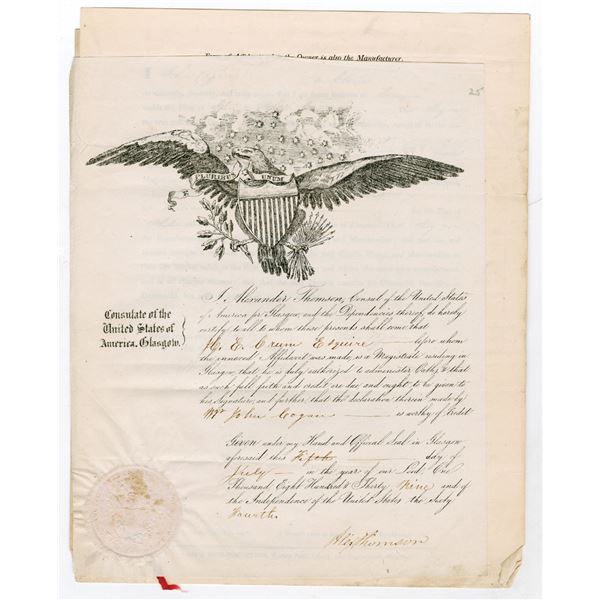 is also the Manufacturer.
25
E PLURIBUS UNUM
Consulate of the
United States of
America, Glasgow.
I, Alexander Thomson, Consul of the United States
of America for Glasgow, and the Dependencies thereof, do hereby
certify to all to whom these presents shall come that
H. E. Crum Esquire before whom
the annexed Affidavit was made, is a Magistrate residing in
Glasgow, that he is duly authorized to administer Oaths, & that
as such full faith and credit are due and ought to be given to
his Signature; and further that the declaration therein made by
Mr John Cogan is worthy of Credit
Given under my Hand and Official Seal in Glasgow
aforesaid this Fifth day of
July in the year of our Lord One
Thousand Eight Hundred & Thirty Nine and of
the Independence of the United States the Sixty
Fourth.
Alex Thomson